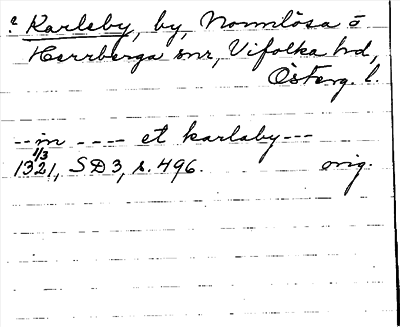 ? Karleby, by, Normlösa o
Herrberga snr, Vifolka hd,
Österg. l.
--in ---- et karlaby---
1/3
1321, SD3, s. 496. orig.